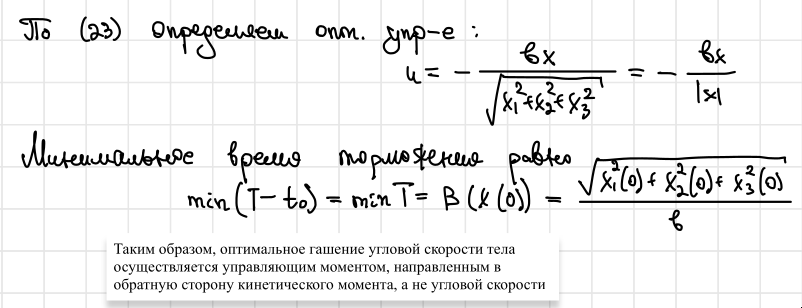 По (23) определяем опт. упр-е :
u = - bx / √(x₁² + x₂² + x₃²) = - bx / |x|
Минимальное время торможения равно
min(T - t₀) = min T = B(x(0)) = √(x₁²(0) + x₂²(0) + x₃²(0)) / b
Таким образом, оптимальное гашение угловой скорости тела
осуществляется управляющим моментом, направленным в
обратную сторону кинетического момента, а не угловой скорости